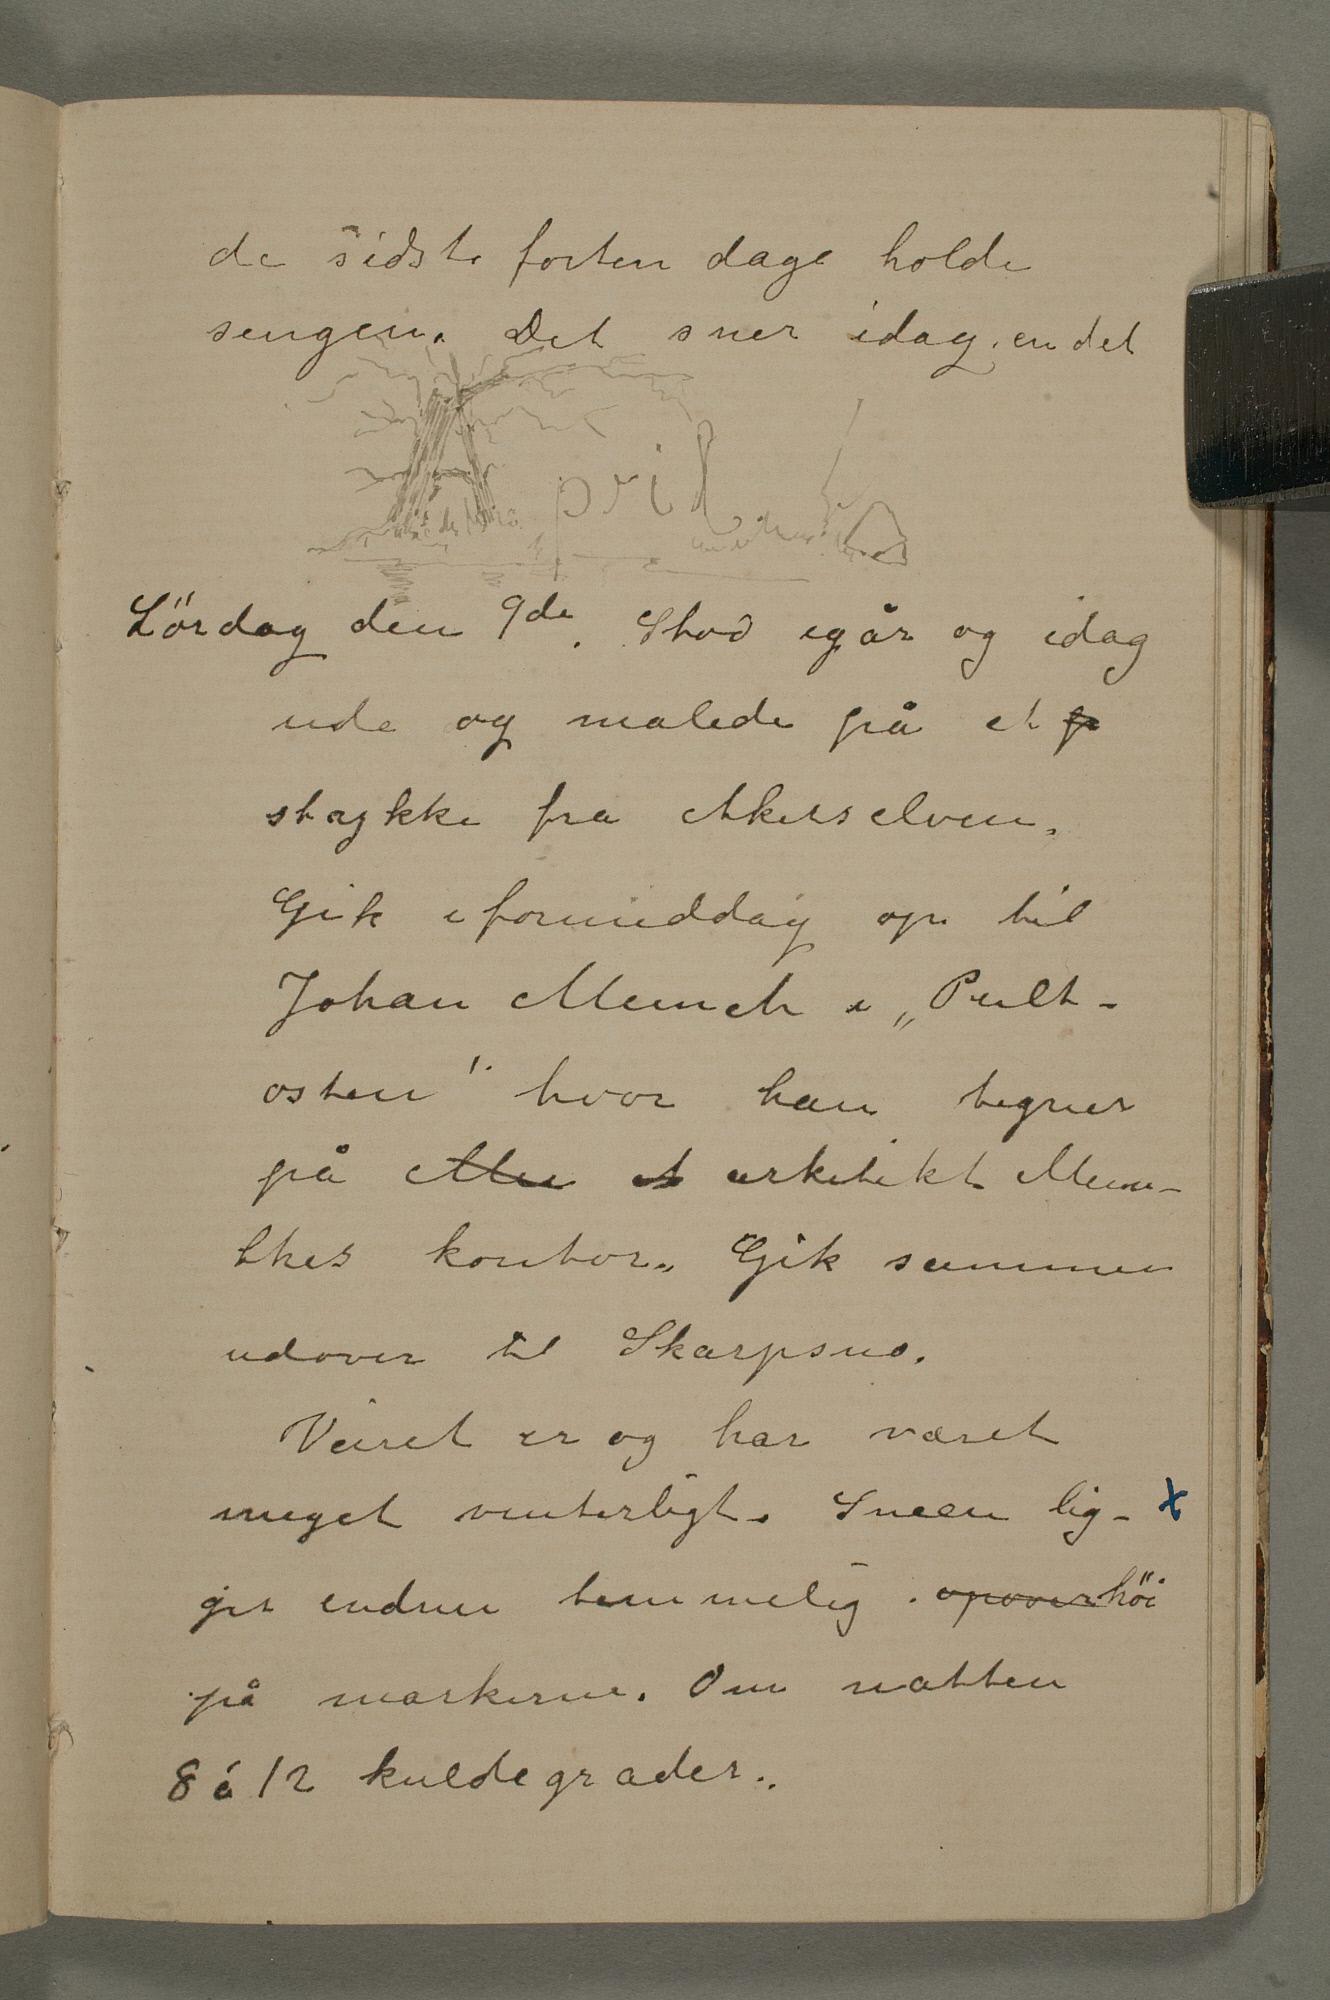 de sidste forten dage holde
sengen. Det sner idag. en del
April
Lördag den 9de. Stod igår og idag
ude og malede på et p
stykke fra Akerselven.
Gik i formiddag op til
Johan Munch i „Pult-
osten" hvor han tegner
på Mu et arkitekt Mun-
thes kontor. Gik sammen
udover til Skarpsno.
Veiret er og har været
meget vinterligt. Sneen lig- x
ger endnu temmelig opover höi
på markerne. Om natten
8 á 12 kuldegrader.